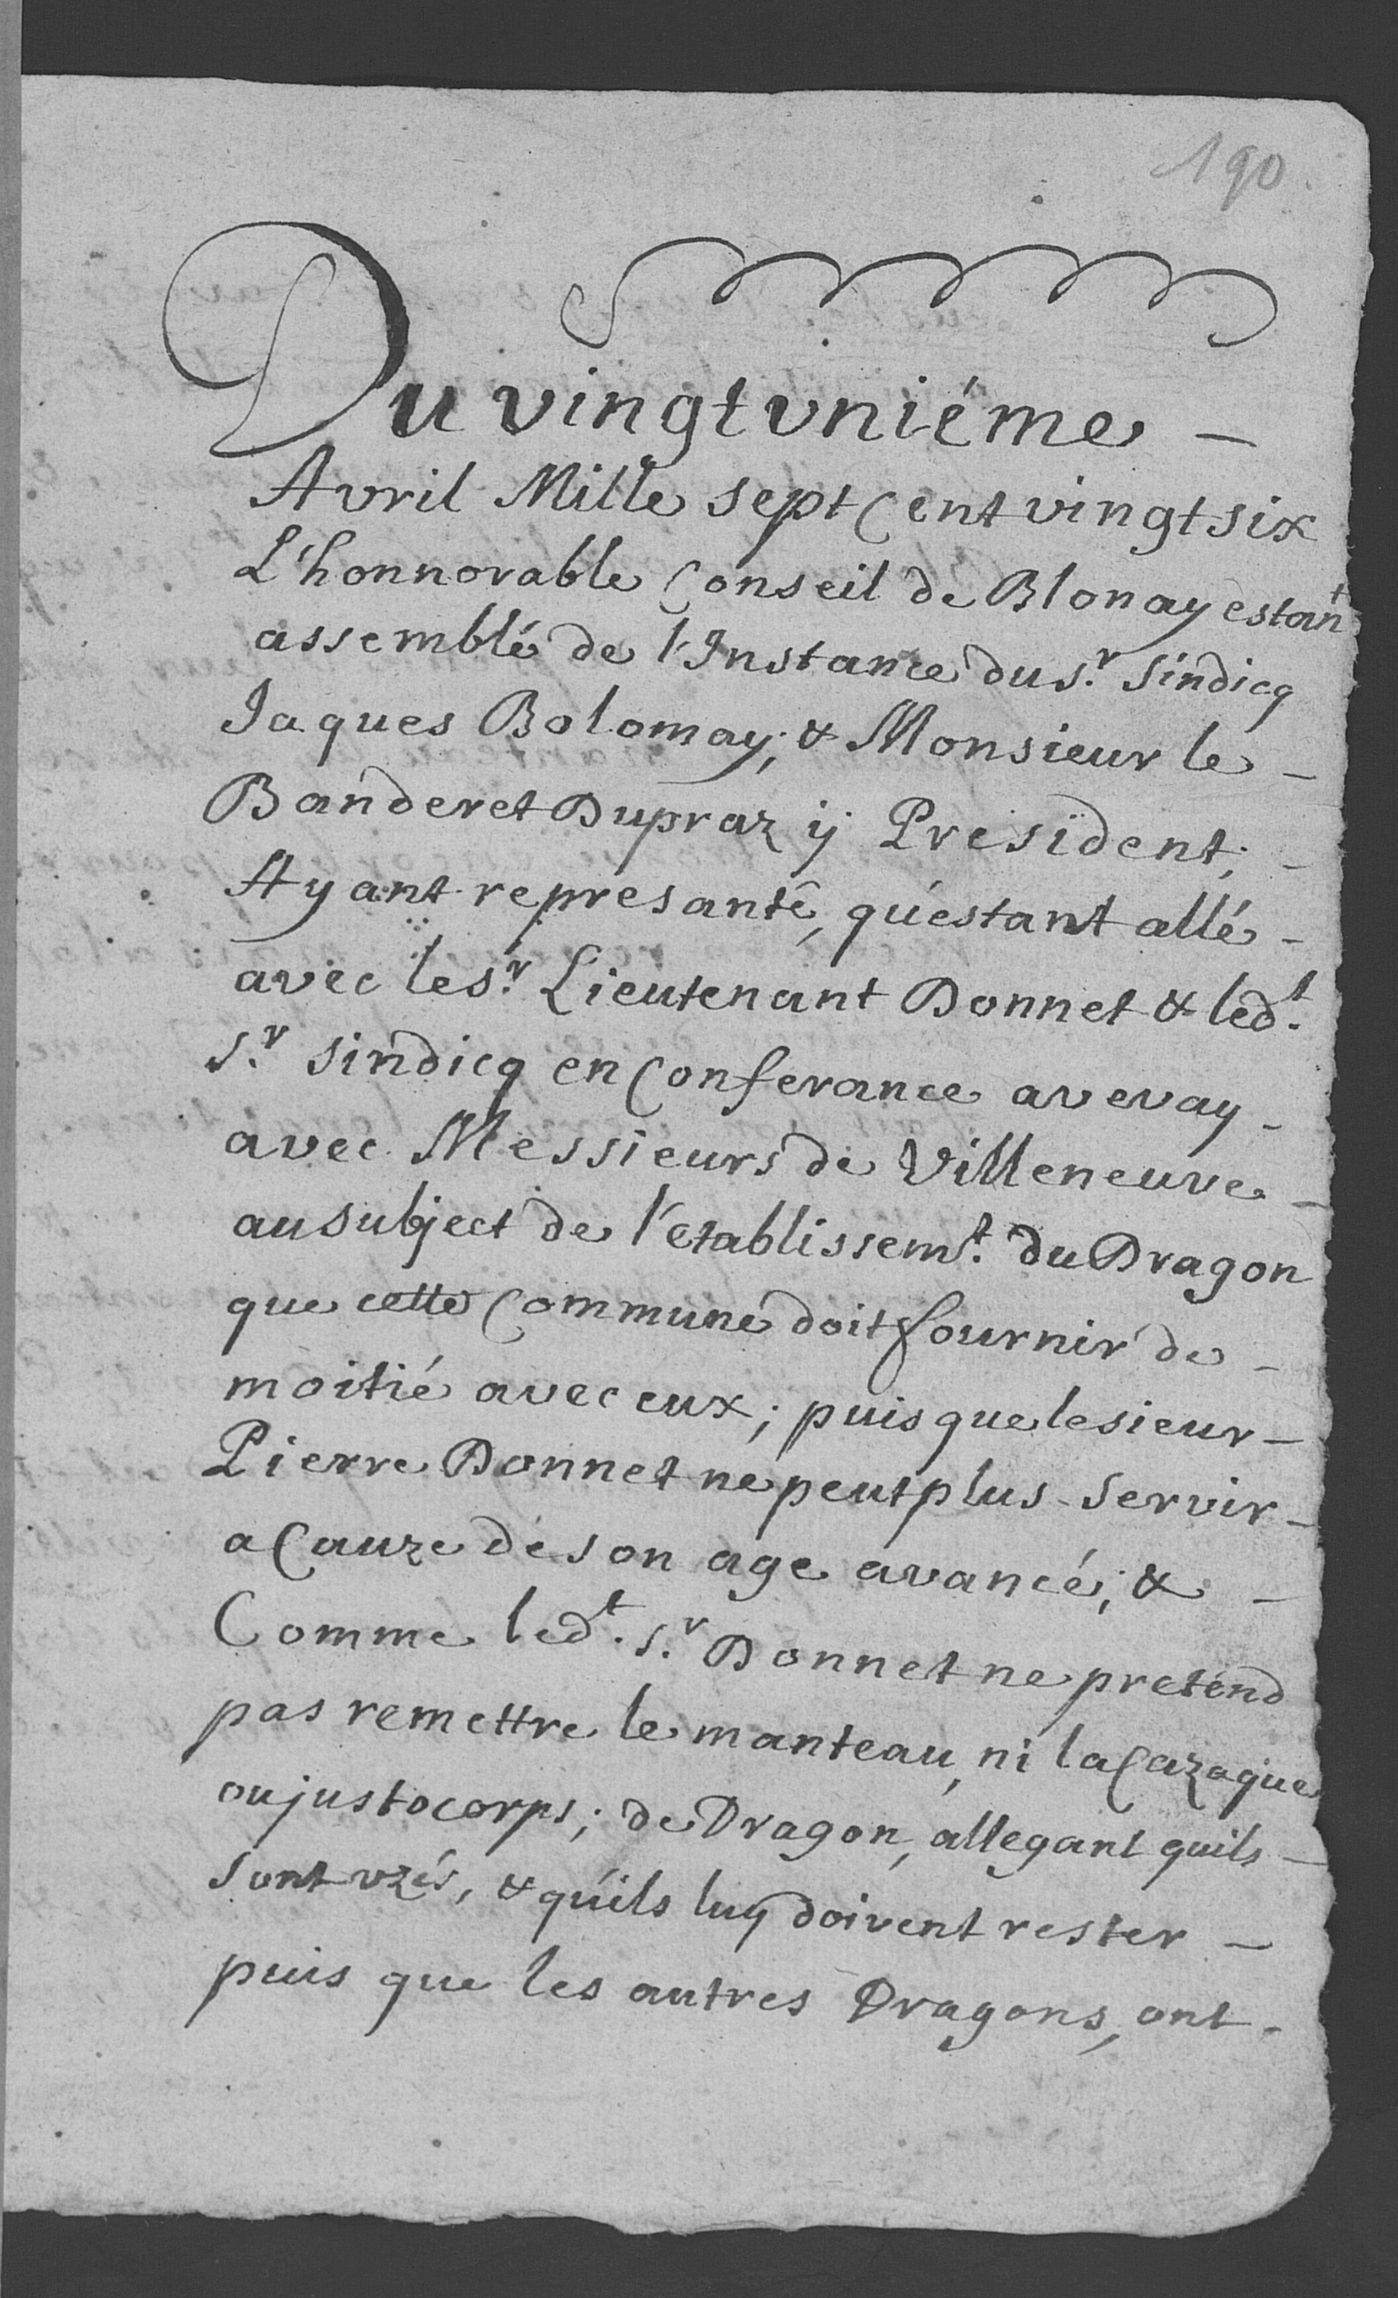 190.
Du vingt vniéme –
Avril Mille sept Cent vingt six
L'honnorable Conseil de Blonay estant
assemblé de l'Instance du s.r Sindicq
Jaques Bolomay; & Monsieur le –
Banderet Dupraz ÿ President; –
Ayant represantê, qu'estant allé –
avec le s.r Lieutenant Bonnet & led.t
s.r sindicq en Conferance a vevay –
avec Messieurs de Villeneuve –
au subject de l'etablissem.t du Dragon
que cette Commune doit fournir de –
moitié avec eux; puis que le sieur –
Pierre Bonnet ne peut plus servir –
a Cauze de son age avancé; & –
Comme led.t s.r Bonnet ne pretend
pas remettre le manteau, ni la Cazaque
ou justocorps; de Dragon, allegant quils –
sont vzés, & qu'ils luy doivent rester –
puis que les autres Dragons, ont –